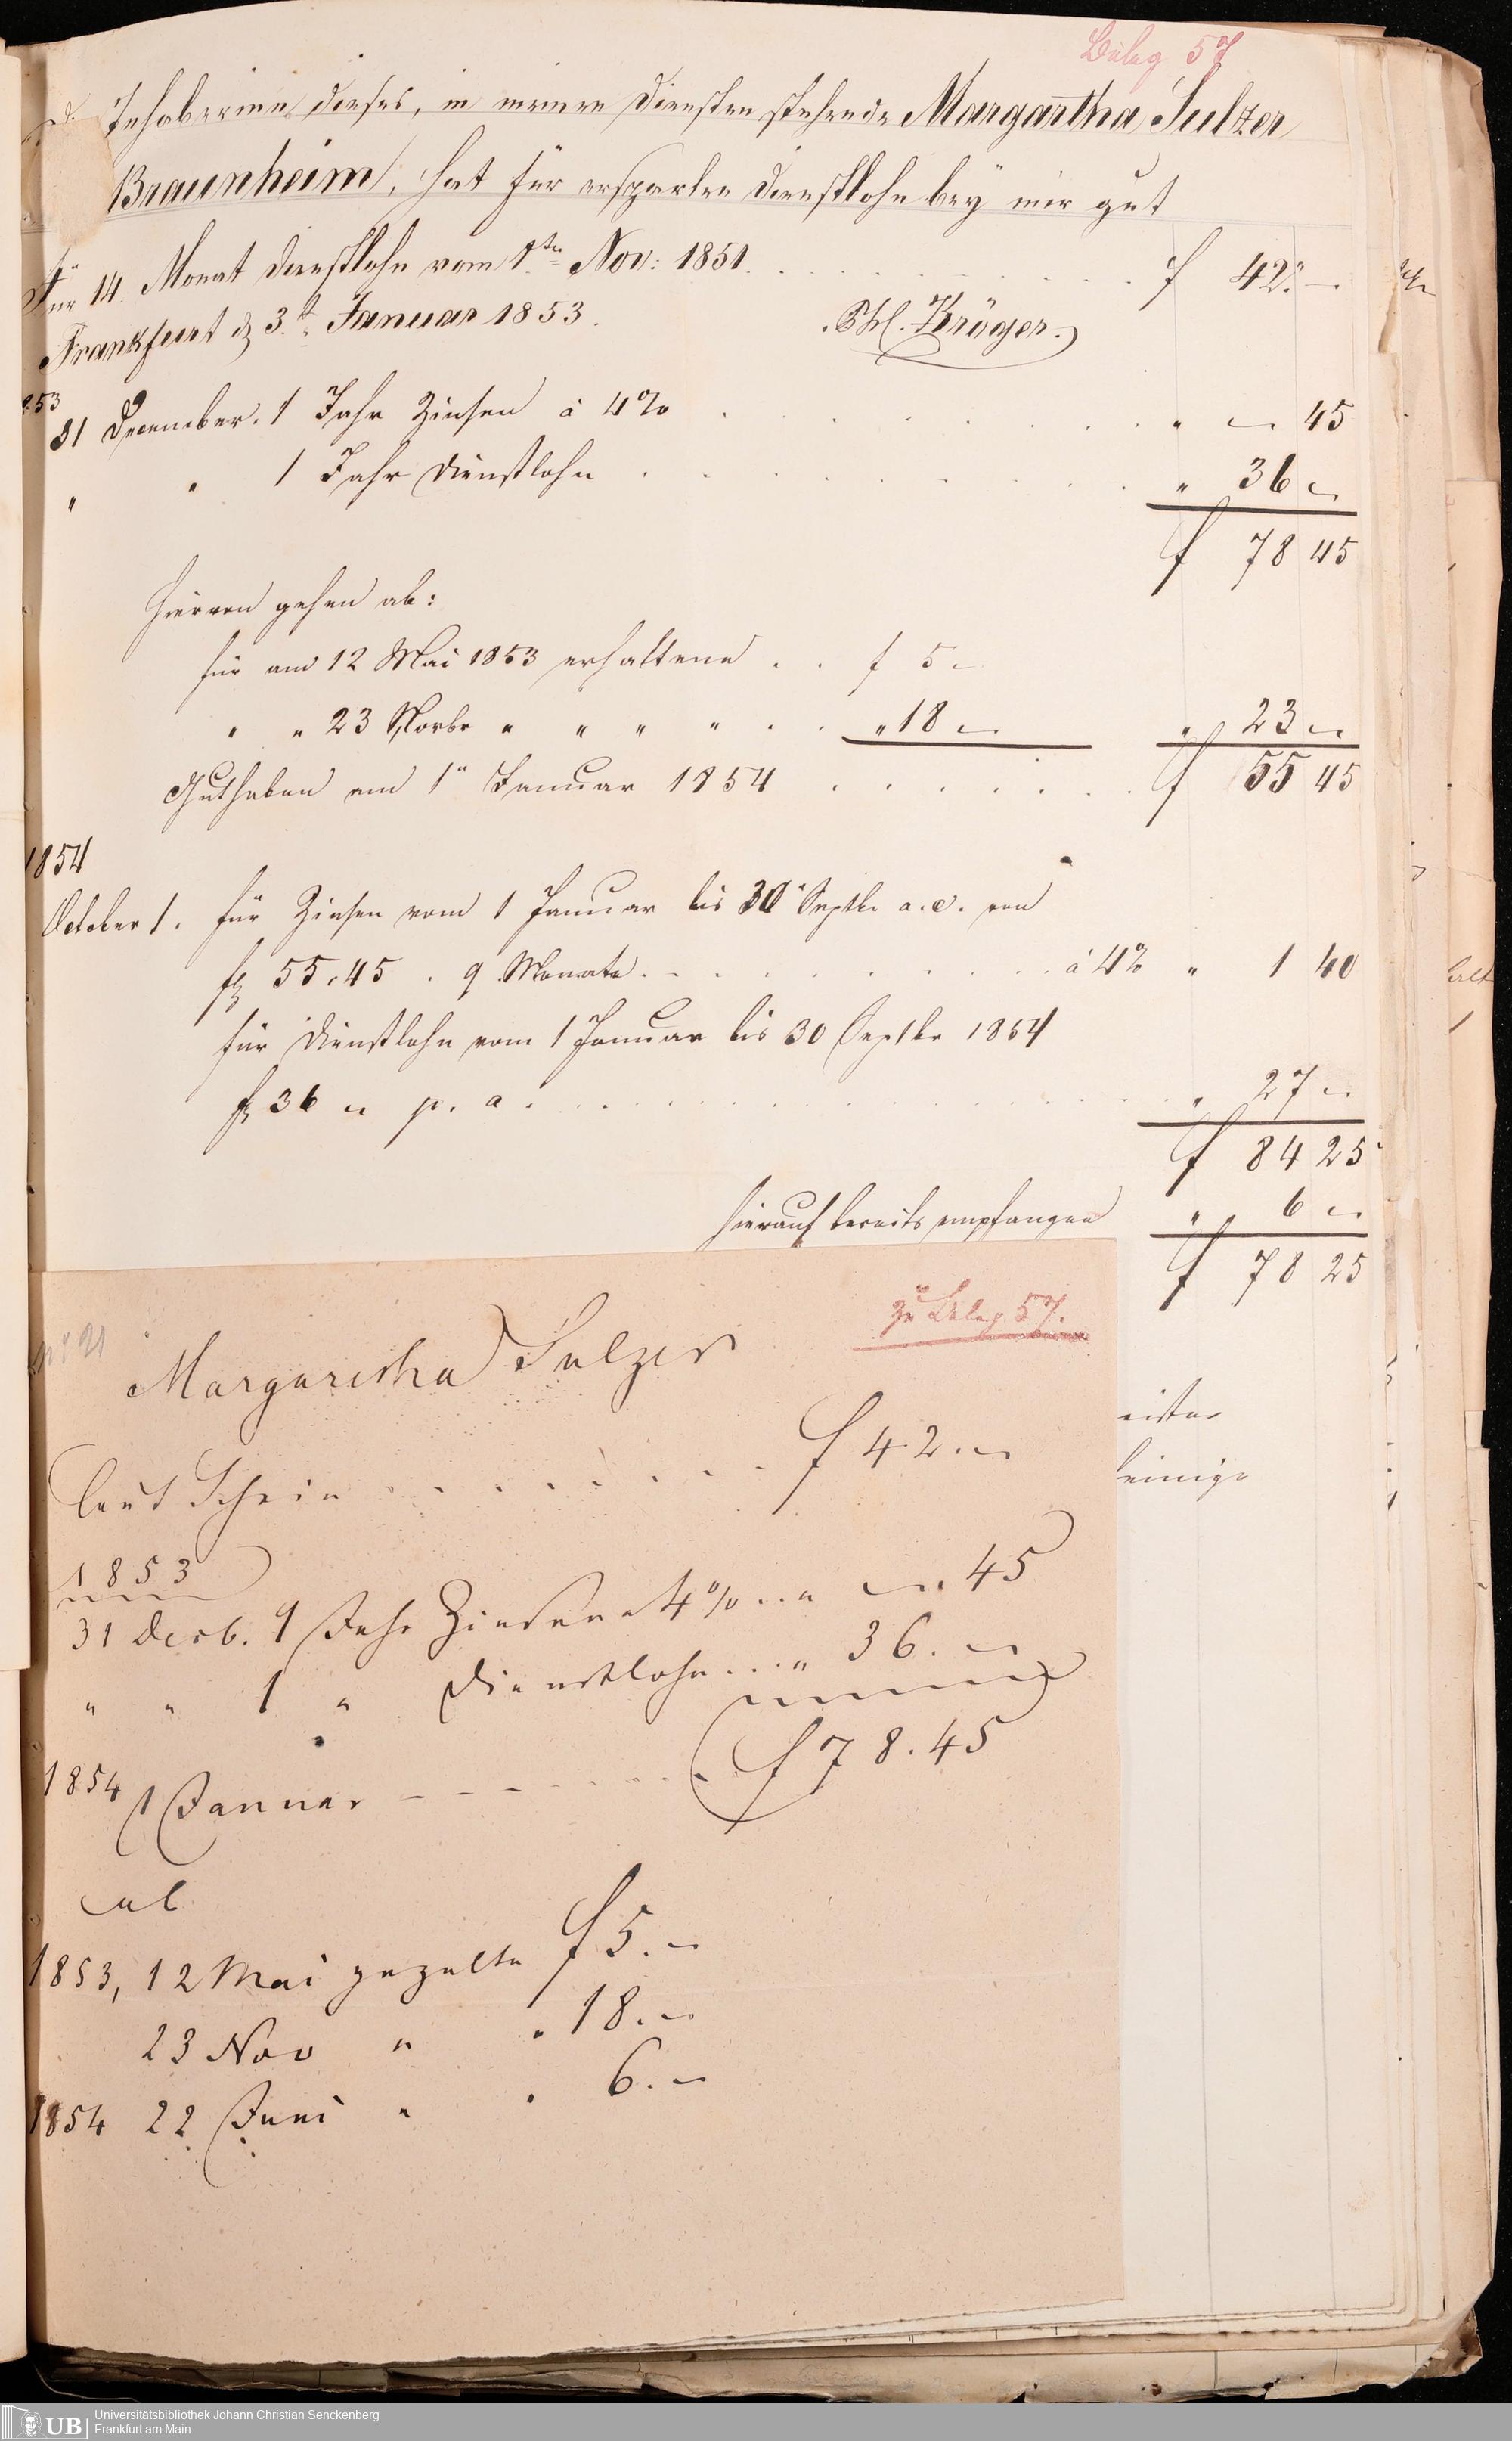 Beleg 57
Inhaberinn dieses, in meinen Diensten stehende Margaretha Sulzer
Braunheim, hat für ersparten Dienstlohn bey mir gut
Für 14 Monat Dienstlohn vom 1ten Nov: 1851 . . . . . . . . f 42 " —
Frankfurt d 3t Januar 1853.
Kröger.
53
31 December. 1 Jahr Zinsen à 4% . . . . . . . . " — 45
" " 1 Jahr Dienstlohn . . . . . . . . " 36 —
f 78 45
Hiervon gehen ab:
für am 12 Mai 1853 erhaltene . . f 5 —
" " 23 Novbr " " " " . . " 18 — " 23 —
Guthaben am 1" Januar 1854 . . . . . . . f 55 45
1854
October 1. für Zinsen vom 1 Januar bis 30 Septbr a. c. von
f 55.45 . 9 Monate . . . . . . . . . à 4% " 1 40
für Dienstlohn vom 1 Januar bis 30 Septbr 1854
f 36 — p. a . . . . . . . . . . . . " 27 —
f 84 25
hierauf bereits empfangen " 6 —
f 78 25
zu Beleg 57.
Margaretha Sulzer
eister
einige
laut Schein . . . . . . . . f 42. —
1853
31 Decb. 1 Jahr Zinsen a 4% . . " — . 45
" " 1 " Dienstlohn . . . " 36. —
1854 1 Januar — — — . . . . . f 78.45
ab
1853, 12 Mai gezalte f 5. —
23 Nov " " 18. —
1854 22 Juni " " 6. —
UB
Universitätsbibliothek Johann Christian Senckenberg
Frankfurt am Main